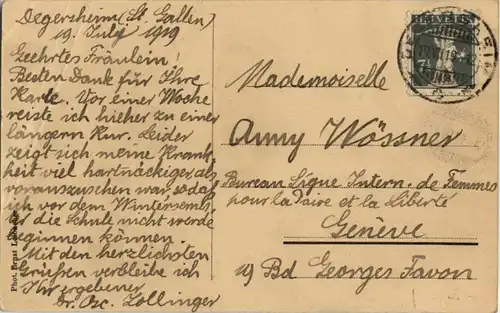 Degersheim (St. Gallen)
19. Juli 1919
Geehrtes Fräulein!
Besten Dank für Ihre
Karte. Vor einer Woche
reiste ich hieher zu einer
längern Kur. Leider
zeigt sich meine Krank-
heit viel hartnäckiger als
vorauszusehen war, sodaß
ich vor dem Wintersemes-
ter die Schule nicht werde
beginnen können.
Mit den herzlichsten
Grüßen verbleibe ich
Ihr ergebener
Dr. Osc. Zollinger
Phot. Ernst
HELVETIA
7½
Mademoiselle
Anny Wössner
Bureau Ligue Intern. de Femmes
pour la Paix et la Liberté
Genève
19 Bd Georges Favon